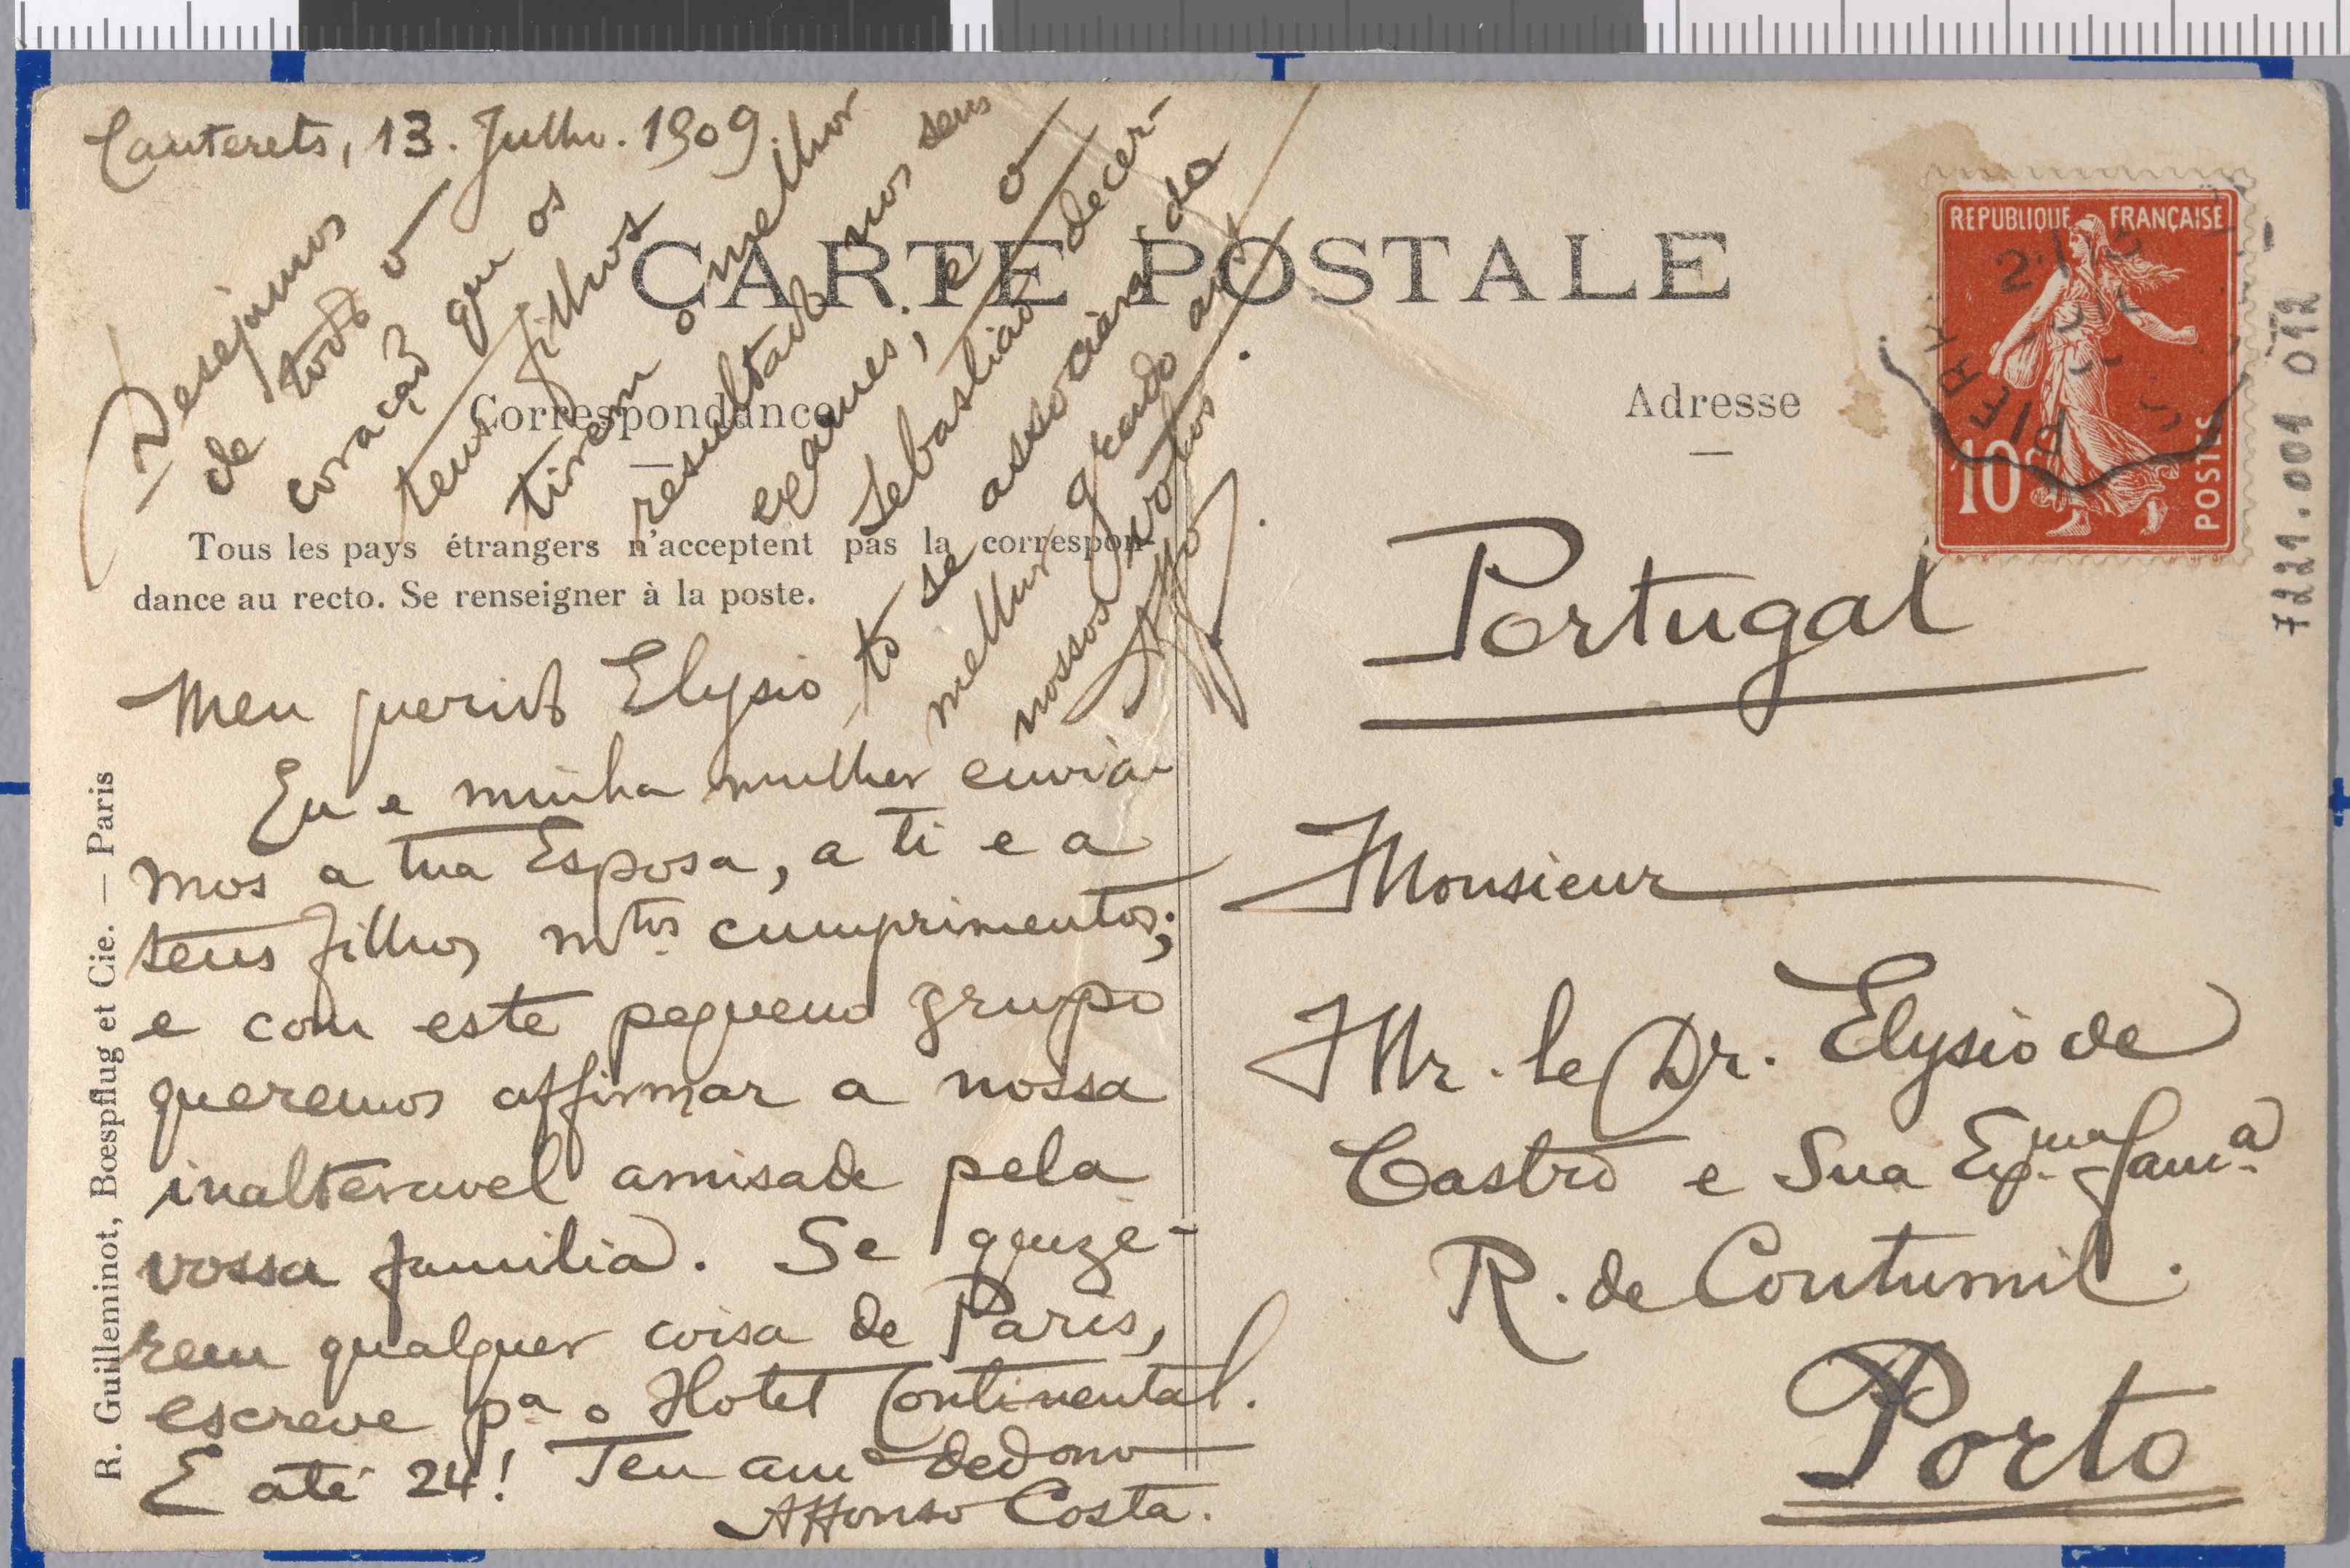 Cauterets, 13. Julho. 1909.
CARTE POSTALE
Correspondance
Tous les pays étrangers n'acceptent pas la correspon-
dance au recto. Se renseigner à la poste.
Meu querido Elysio
Eu e minha mulher envia-
mos a tua Esposa, a ti e a
teus filhos m.tos cumprimentos;
e com este pequeno grupo
queremos affirmar a nossa
inalteravel amisade pela
vossa familia. Se quize-
rem qualquer coisa de Paris,
escreve p.a o Hotel Continental.
E até 24! Teu am.o
Affonso Costa.
Desejamos
de todo o
coração que os
teus filhos
tirem o melhor
resultado nos seus
exames, e o
Sebastião decer-
to se associará do
melhor grado aos
nossos votos.
Aff.
R. Guilleminot, Bœspflug et Cie. — Paris
Adresse
REPUBLIQUE FRANÇAISE
10c
POSTES
Portugal
Monsieur
Mr. le Dr. Elysio de
Castro e Sua Ex.ma Fam.a
R. de Contumil.
Porto
7221.001 012